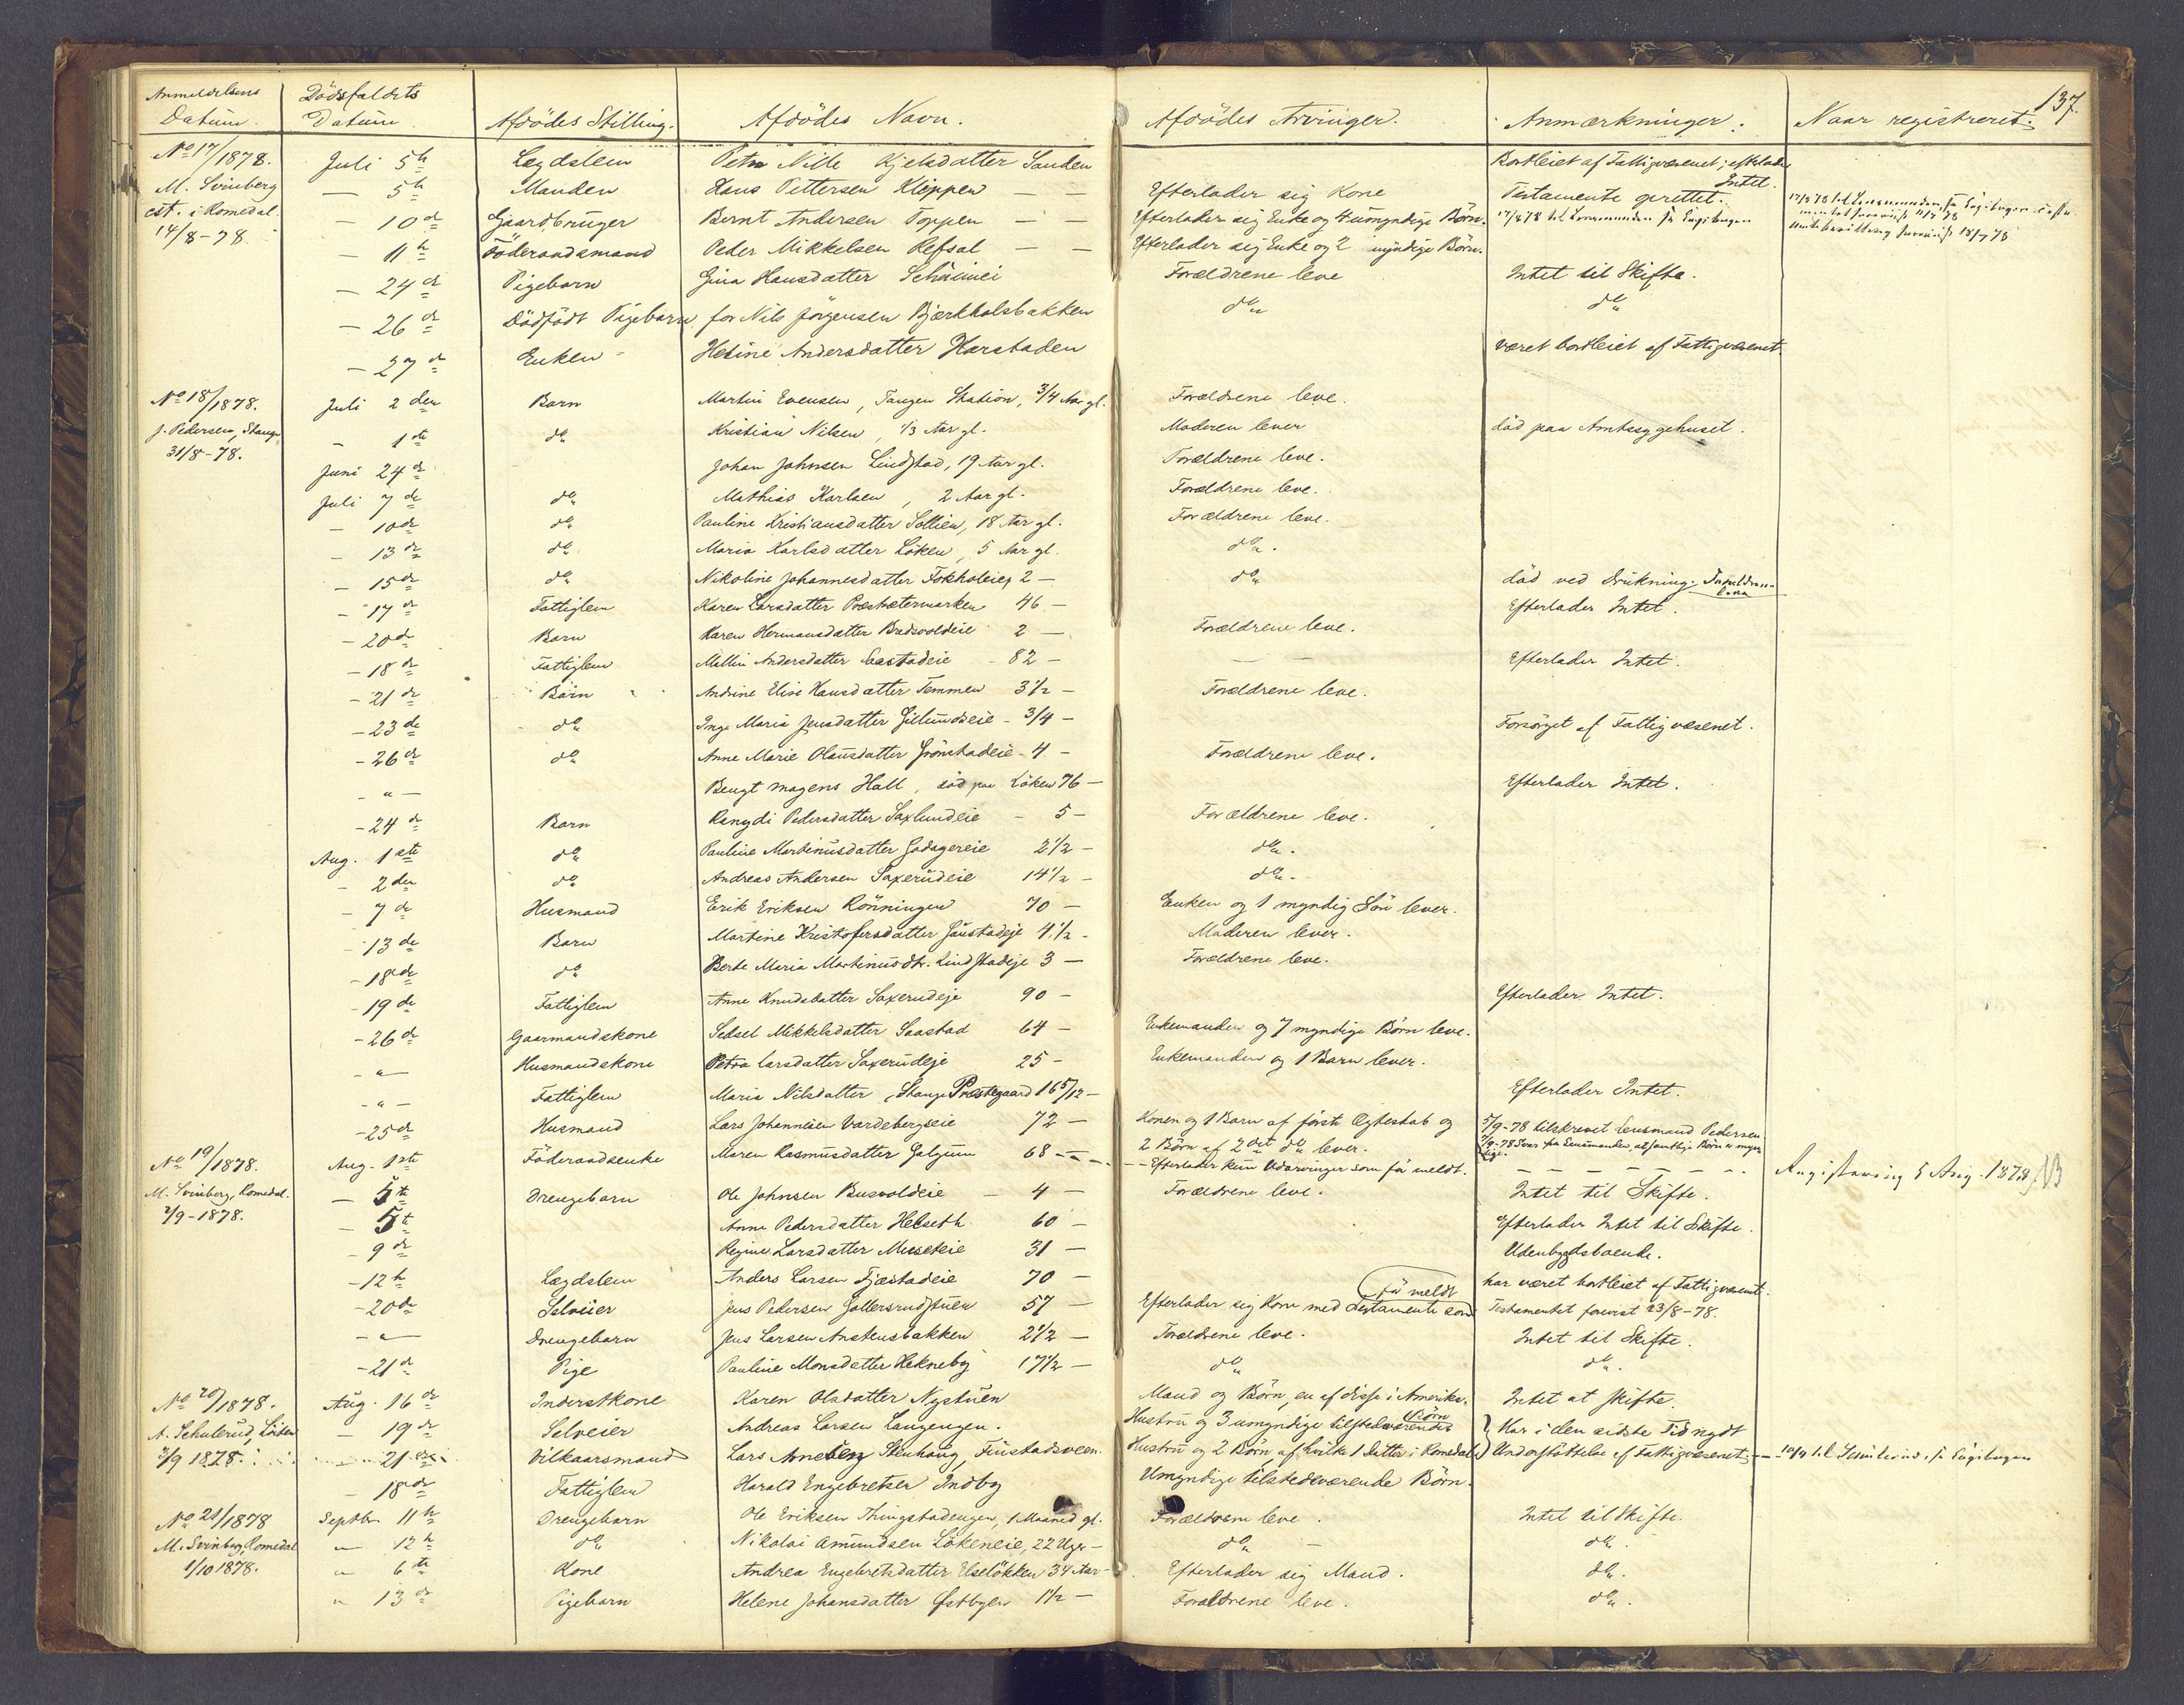 137.
Anmeldelsens Datum. Dödsfaldets Datum. Afdödes Stilling. Afdödes Navn. Afdödes Arvinger. Anmærkninger. Naar registreret.
No 17/1878. Juli 5te Lægdslem Kjelsdatter Sanden Bortleiet af Fattigvæsenet; efterlader Intet.
M. Svinberg — 5te Manden Hans Pettersen Kleppen — — Efterlader sig Kone Testamente oprettet.
cst. i Romedal. — 10de Gaardbruger Bernt Andersen Toppen — — Efterlader sig Enke og 4 umyndige Börn.
14/8-78. — 11te Föderaadsmand Peder Mikkelsen Refsal — — Efterlader sig Enke og 2 myndige Börn.
— 24de Pigebarn Gina Hansdatter Forældrene leve Intet til Skifte.
— 26de Dödfödt Pigebarn for Nils Jörgensen Bjærkholsbakken do do
— 27de Enken Andersdatter Harstaden været bortleiet af Fattigvæsenet.
No 18/1878. Juli 2den Barn Martin Evensen, Tangen Station, 3/4 Aar gl. Forældrene leve.
J. Pedersen, Stange — 1ste do Kristian Nilsen, 1/3 Aar gl. Moderen lever död paa Amtssygehuset.
31/8-78. Juni 24de Johan Johnsen Lindstad, 19 Aar gl. Forældrene leve.
Juli 7de do Mathias Karlsen, 2 Aar gl. Forældrene leve.
— 10de do Pauline Kristiansdatter Sollien, 18 Aar gl. Forældrene leve.
— 13de do Maria Karlsdatter Löken, 5 Aar gl. do.
— 15de do Nikoline Johannesdatter 2 — do död ved Drukning. Forældrene leve
— 17de Fattiglem Karen Larsdatter Præstætermarken 46 — Efterlader Intet.
— 20de Barn Karen Hermansdatter 2 — Forældrene leve.
— 18de Fattiglem Andersdatter Saastadeie 82 — — — Efterlader Intet.
— 21de Barn Andrine Elise Hansdatter Temmen 3 1/2 — Forældrene leve.
— 23de do Inge Maria Jensdatter Gillundseie 3/4 — Forsörget af Fattigvæsenet.
— 26de do Anne Marie Olausdatter Grönstadeie 4 — Forældrene leve.
- " — Bengt Magens Hall, död paa Löken 76 — Efterlader Intet.
— 24de Barn Pedersdatter Saxlundeie — 5 — Forældrene leve.
Aug. 1ste do Pauline Martinusdatter Godagereie 2 1/2 — do.
— 2den do Andreas Andersen Saxerudeie 14 1/2 — do.
— 7de Husmand Erik Eriksen Rönningen 70 — Enken og 1 myndig Sön lever.
— 13de Barn Martine Kristofersdatter Gaustadeje 4 1/2 — Moderen lever.
— 18de do Berte Maria Martinusdtr. Lindstadeje 3 — Forældrene leve.
— 19de Fattiglem Anne Knudsdatter Saxerudeje 90 — Efterlader Intet.
— 26de Gaarmandskone Sedsel Mikkelsdatter Saastad 64 — Enkemanden og 7 myndige Börn leve.
- " — Husmandskone Petra Larsdatter Saxerudeje 25 — Enkemanden og 1 Barn lever.
- " — Fattiglem Maria Nilsdatter, Stange Præstegaard 16 5/12 — Efterlader Intet.
— 25de Husmand Lars Johannesen Vardebergseie 72 — Konen og 1 Barn af förste Ægteskab og 5/9-78 tilskrevet Lensmand Pedersen
2 Börn af 2det do lever. 7/9-78 Svar fra Lensmanden, at samtlige Börn er myndige.
No 19/1878. Aug. 1ste Föderaadsenke Maren Rasmusdatter Galgum 68 — — Efterlader kun Udarvinger som för meldt. Registrering 5 Aug. 1878
M. Svinberg, Romedal. — 5te Drengebarn Ole Johnsen Busvoldeie — 4 — Forældrene leve. Intet til Skifte.
2/9-1878. — 5te Anne Pedersdatter Helseth 60 — Efterlader Intet til Skifte.
— 9de Regine Larsdatter 31 — Udenbygdsboende.
— 12te Lægdslem Anders Larsen Fjæstadeie 70 — har været bortleiet af Fattigvæsenet.
— 20de Selveier Jens Pedersen Gottersrudstuen 57 — Efterlader sig Kone med Testamente som för meldt Testamentet forevist 23/8-78.
- " — Drengebarn Jens Larsen Anstensbakken 2 1/2 — Forældrene leve. Intet til Skifte.
— 21de Pige Pauline Monsdatter Hekneby 17 1/2 — do do.
No 20/1878. Aug. 16de Inderstkone Karen Olsdatter Nystuen Mand og Börn, en af disse i Amerika. Intet at skifte.
A. Schulerud, Löiten — 19de Selveier Andreas Larsen Langengen. Hustru og 3 umyndige tilstedeværende Börn Har i den sidste Tid nydt
3/9 1878. 21de Vilkaarsmand Lars Arneberg Stenhaug, Fuistadsveen. Hustru og 2 Börn af hvilke 1 Datter i Romedal Understöttelse af Fattigvæsenet.
— 18de Fattiglem Harald Engebretsen Indby Umyndige tilstedeværende Börn.
No 21/1878 Septbr. 11te Drengebarn Ole Eriksen Thingstadengen, 1 Maaned gl. Forældrene leve. Intet til Skifte.
M. Svinberg, Romedal " 12te do Nikolai Amundsen Lökeneie, 22 Uger — do do.
1/10 1878. " 6te Kone Andrea Engebretsdatter Elselökken 34 Aar — Efterlader sig Mand. do.
" 13de Pigebarn Helene Johansdatter Østbyen 1 1/2 — Forældrene leve. do.